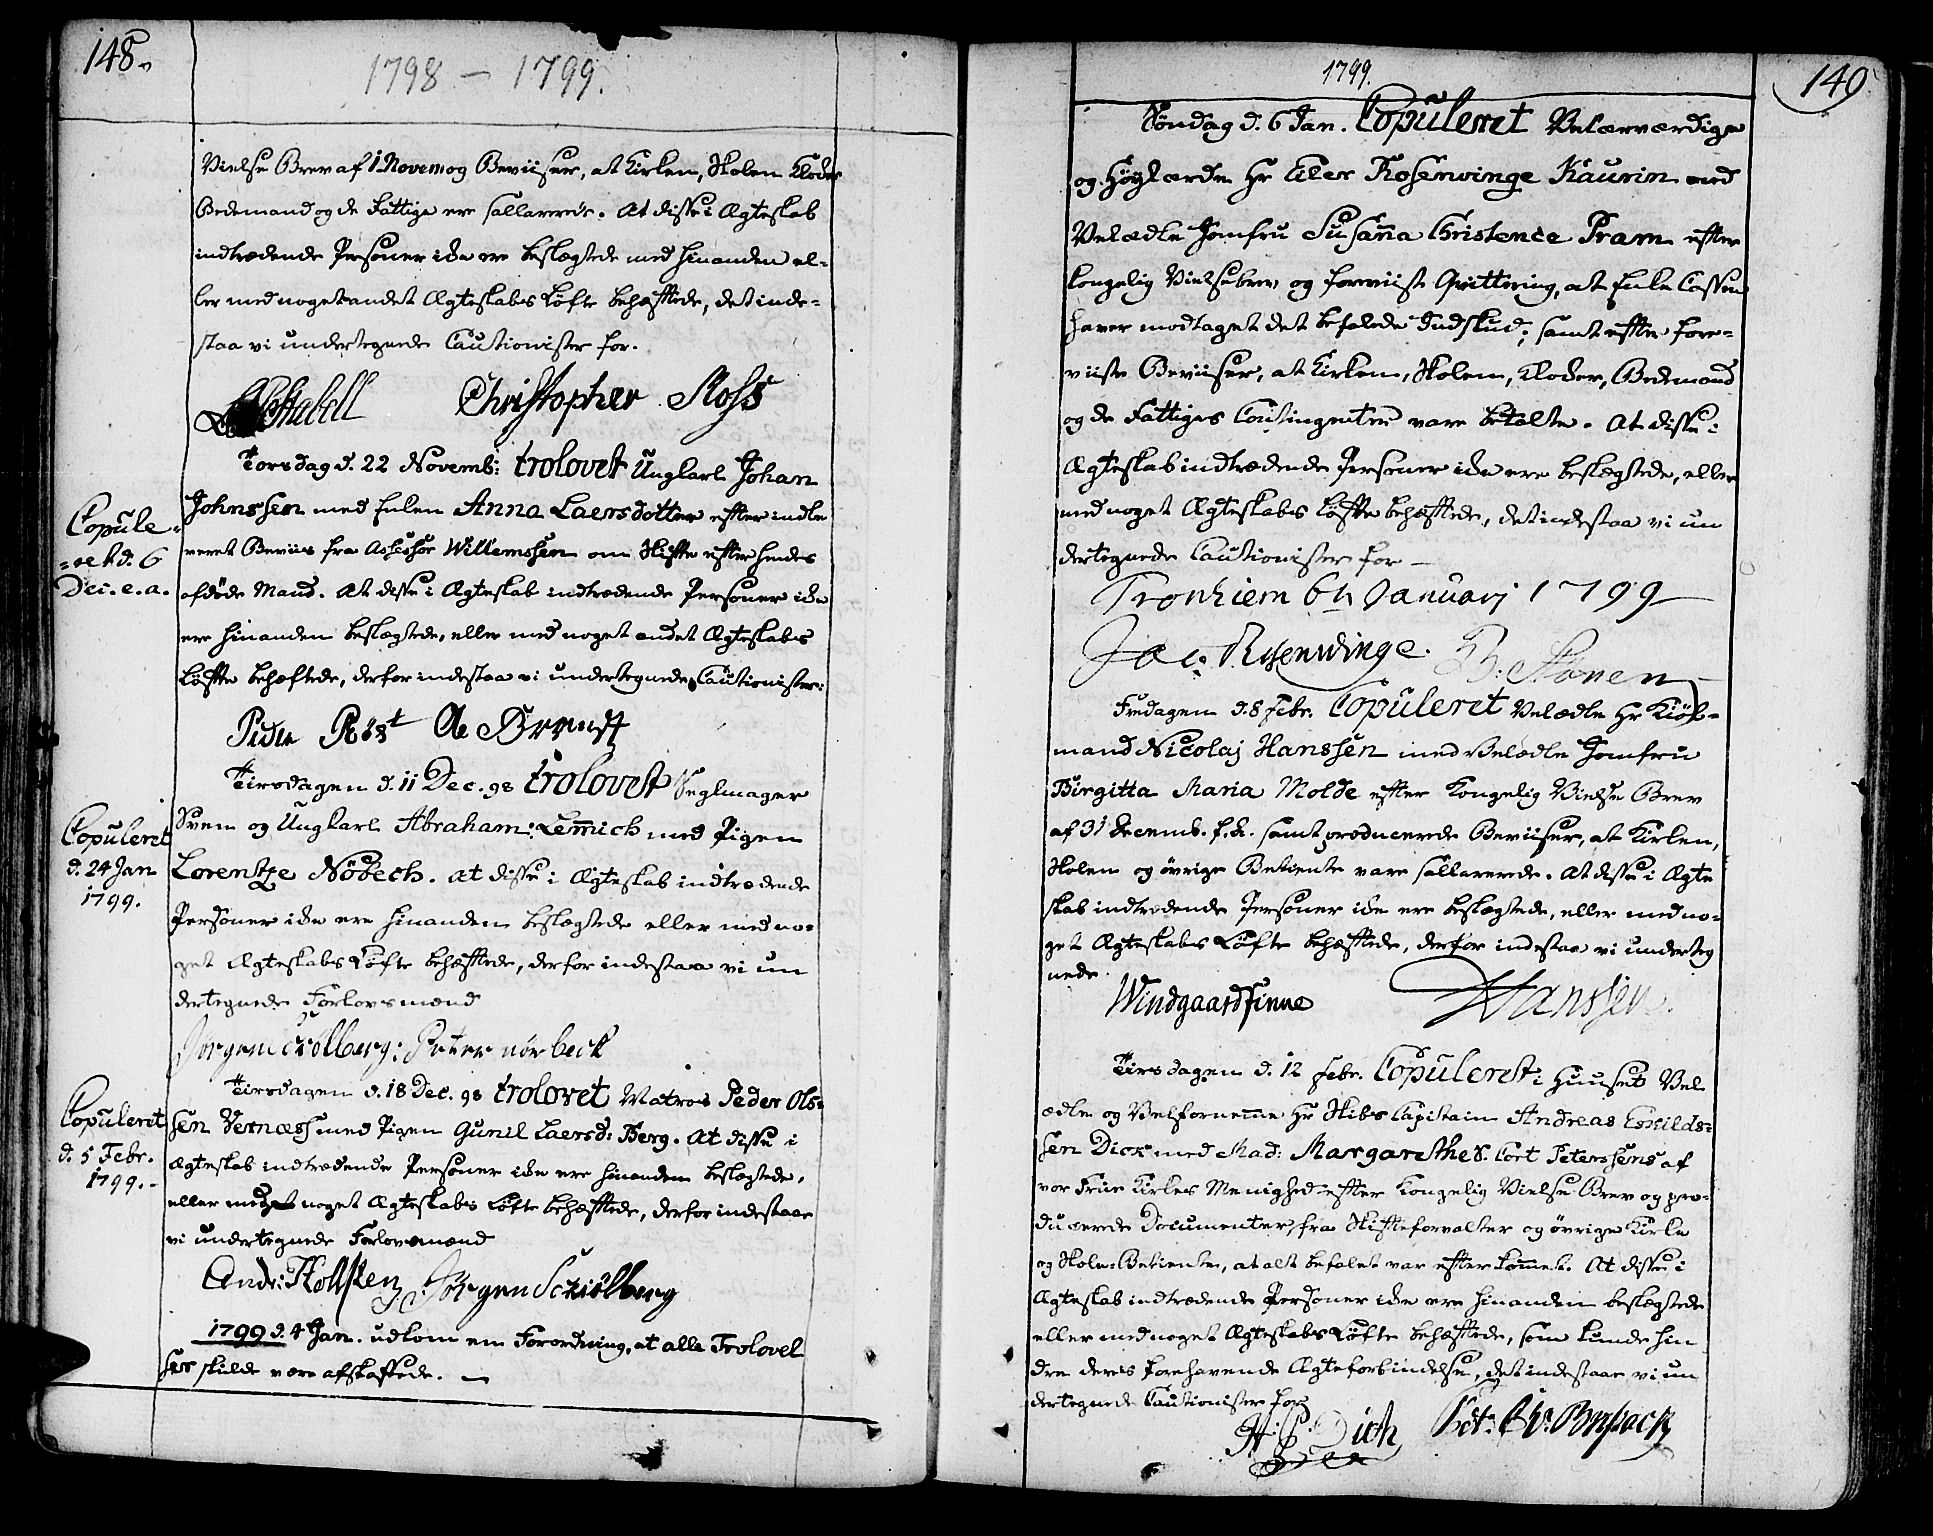 148.
1798 – 1799.
Vielse Brev af 1 Novem og Beviiser, at Kirken, Skolen Kloder
Bedemand og de Fattige ere sallarerede. At disse i Ægteskab
indtrædende Personer ikke ere beslægtede med hinanden el-
ler med noget andet Ægteskabs Løfte behæftede, det inde-
staa vi undertegnede Cautionister for.
Stabell Christopher Ross
Torsdag d. 22 Novemb: trolovet Ungkarl Johan
Johnssen med Enken Anna Laersdotter efter indle
veret Beviis fra Assessor Willemssen om Skifte efter hendes
afdøde Mand. At disse i Ægteskab indtrædende Personer ikke
ere hinanden beslægtede, eller med noget andet Ægteskabs
Løfte behæftede, derfor indestaa vi undertegnede Cautionister:
Copule-
-ret d. 6
Dec. e. a.
Peder Röst
Tirsdagen d. 11 Dec. 98 trolovet Seglmager
Svem og Ungkarl Abraham Lem̅ich med Pigen
Lorentze Nöbech. At disse i Ægteskab indtrædende
Personer ikke ere hinanden beslægtede eller med no-
get Ægteskabs Løfte behæftede, derfor indestaa vi un
dertegnede Forlovsmænd
Copuleret
d. 24 Jan
1799.
Jörgen Schölberg: Peter nörbeck
Tirsdagen d. 18 Dec. 98 trolovet Matros Peder Ols-
sen Vernæss med Pigen Gunil Laersd: Berg. At disse i
Ægteskab indtrædende Personer ikke ere hinanden beslægtede,
eller med noget Ægteskabs Løfte behæftede, derfor indestaae
vi undertegnede Forlovsmænd
Copuleret
d. 5 Febr.
1799.-
Andr: Hollsten Jörgen Schiölberg
1799 d. 4 Jan. udkom en Forordning, at alle Trolovel
ser skulde være afskaffede. –
1799.
149
Søndag d. 6 Jan. Copuleret Velærværdige
og Høylærde Hr Eiler Rosenvinge Kaurin med
Velædle Jomfru Susan̅a Christence Pram efter
kongelig Vielsebrev og foreviiste Qvittering, at Enke Cassen
haver modtaget det befalede Indskud; samt efter fore-
viiste Beviiser, at Kirken, Skolen, Kloder, Bedemand
og de Fattiges Contingenter vare betalte. At disse i
Ægteskab indtrædende Personer ikke ere beslægtede, eller
med noget Ægteskabs Løfte behæftede, det indestaa vi un
dertegnede Cautionister for –
Tronhiem 6te Januarj 1799
Jac: Rosenvinge. B. Stenen
Fredagen d. 8 Febr. Copuleret Velædle Hr Kiöb-
mand Nicolaj Hanssen med Velædle Jomfru
Birgitta Maria Molde efter Kongelig Vielse Brev
af 31 Decemb. f. A. samt producerede Beviiser, at Kirken,
Skolen og øvrige Betiente vare sallarerede. At disse i Ægte
skab indtrædende Personer ikke ere beslægtede, eller med no-
get Ægteskabs Løfte behæftede, derfor indestaa vi underteg
nede
Windgaard Finne Hanssen.
Tirsdagen d. 12 Febr. Copuleret i Huuset Vel
ædle og Velfornem̅e Hr Skibs Capitain Andreas Eskilds-
sen Dick med Mad: Margarethe S. Cort Peterssens af
vor Frue Kirkes Menighed efter Kongelig Vielse Brev og pro-
ducerede Documenter, fra Skifteforvalter og øvrige Kirke
og Skole-Betiente, at alt befalet var efterkom̅et. At disse i
Ægteskab indtrædende Personer ikke ere hinanden beslægtede
eller med noget Ægteskabs Løfte behæftede, som kunde hin
dre deres forehavende Ægteforbindelse, det indestaae vi un
dertegnede Cautionister for
Dick